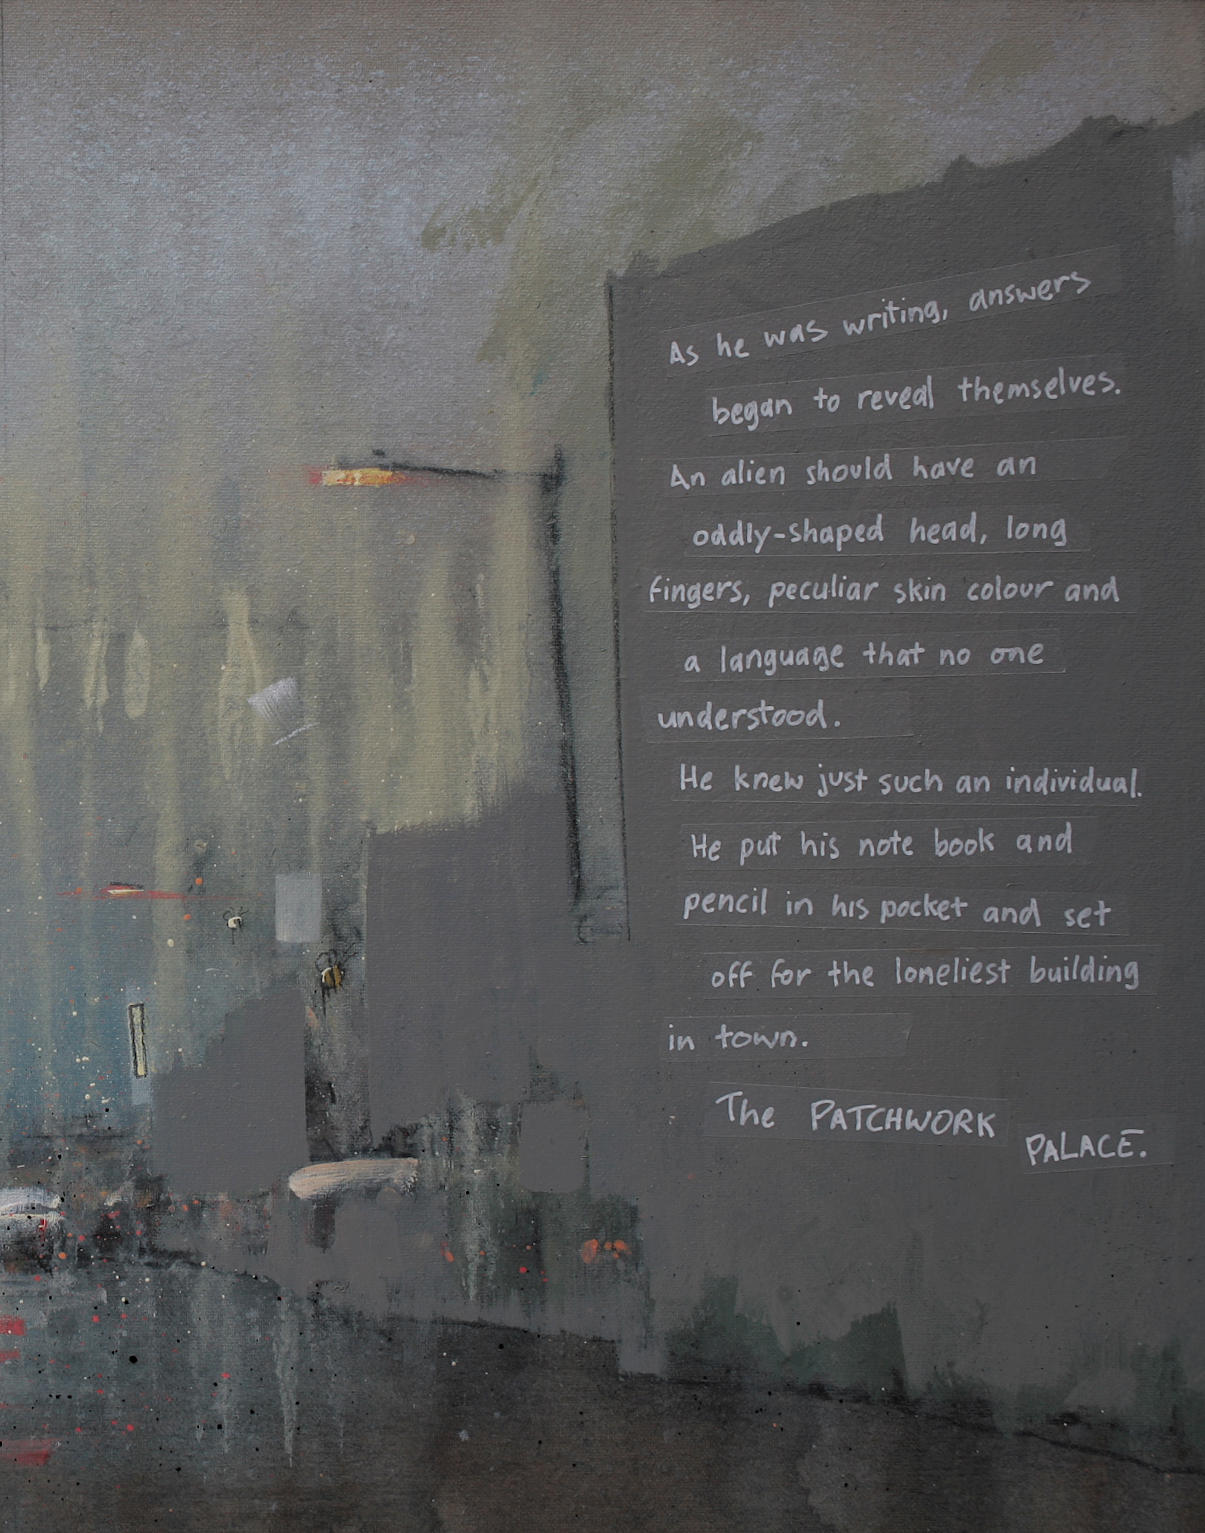 As he was writing, answers
began to reveal themselves.
An alien should have an
oddly-shaped head, long
fingers, peculiar skin colour and
a language that no one
understood.
He knew just such an individual.
He put his note book and
pencil in his pocket and set
off for the loneliest building
in town.
The PATCHWORK
PALACE.